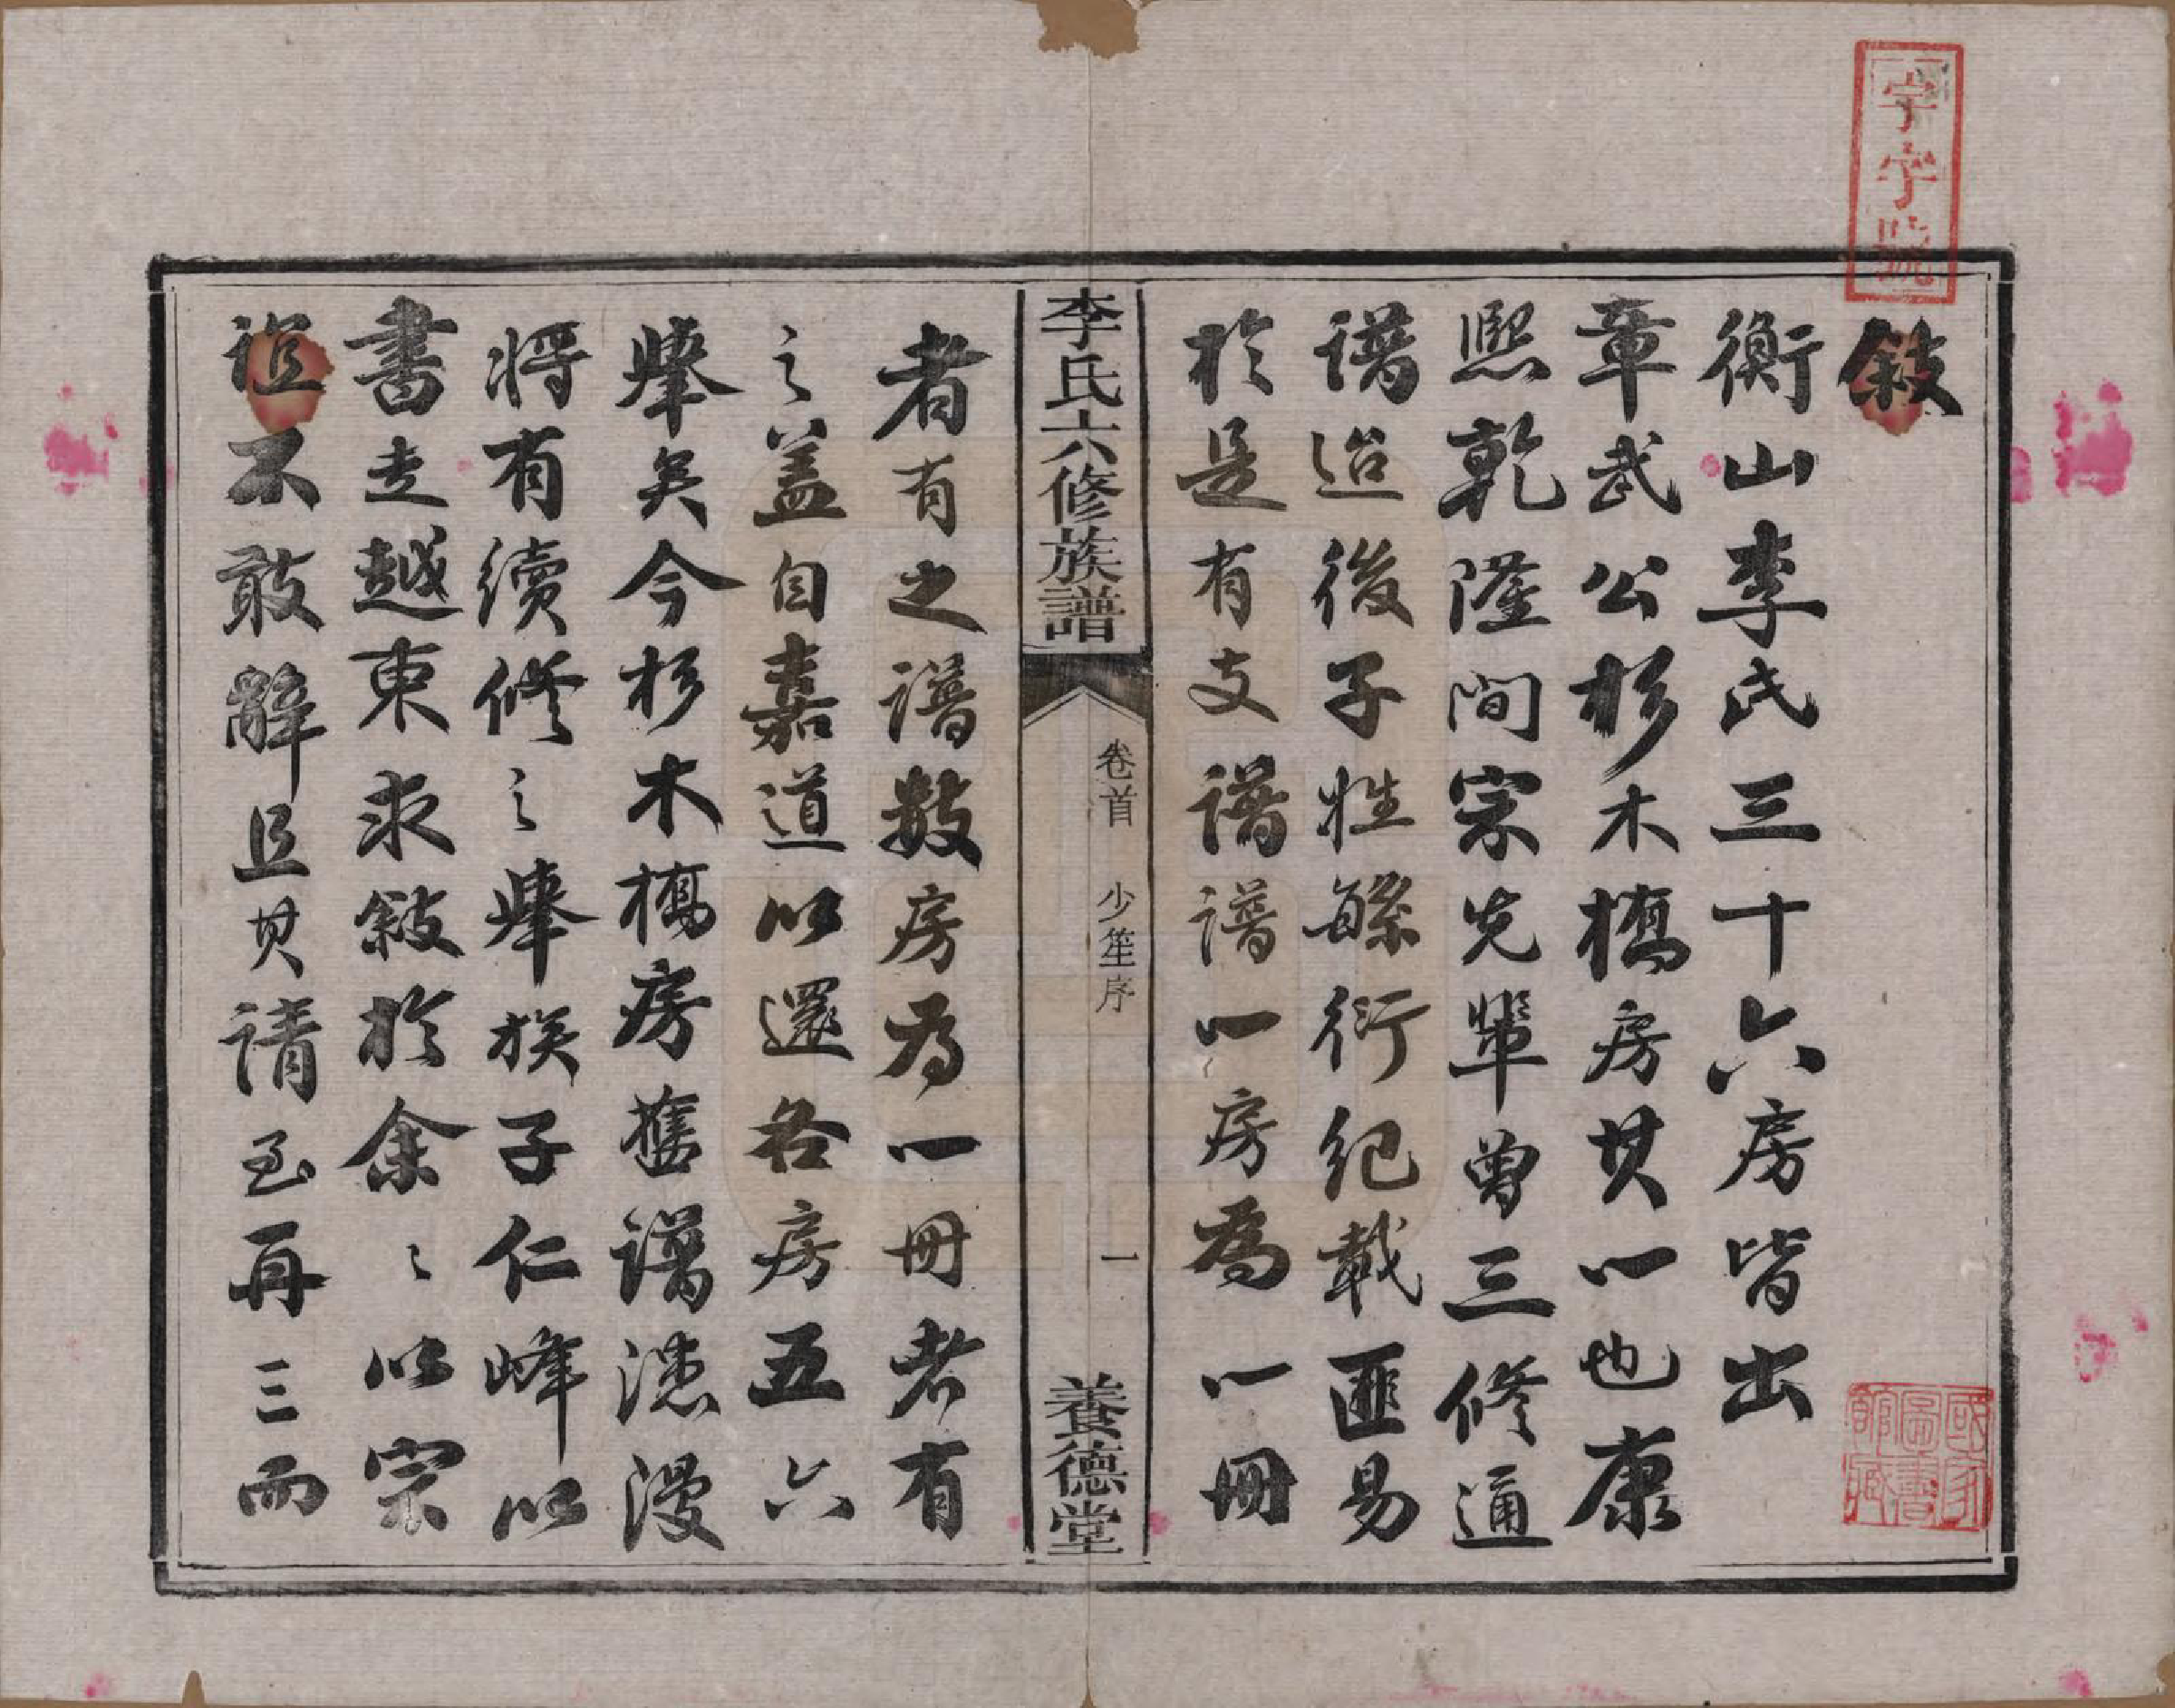 敘
衡山李氏三十六房皆出
章武公杉木橋房其一也康
熙乾隆間宗先輩曾三修通
譜迨後子姓繇衍紀載匪易
於是有支譜譜一房為一冊
李氏六修族譜
卷首 少笙序 一
養德堂
者有之譜數房為一冊者有
之蓋自嘉道以還各房五六
舉矣今杉木橋房舊譜漶漫
將有續修之舉族子仁峰以
書走越東求敘於余〻以宗
誼不敢辭且其請至再三而
字字號
國家圖書館藏